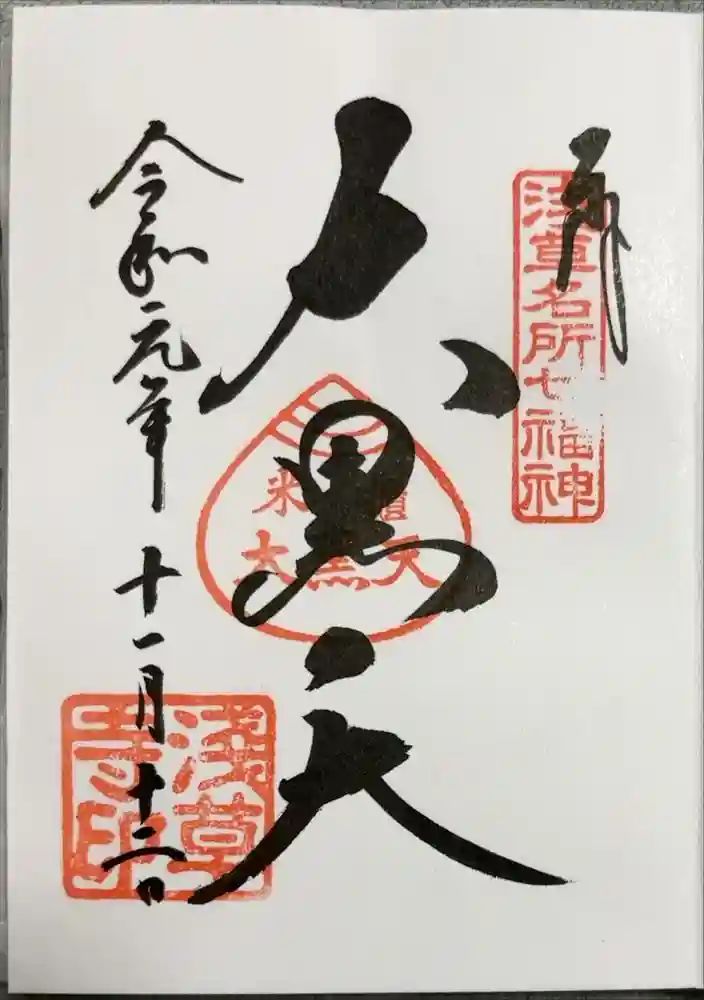 奉拝
浅草名所七福神
大黒天
米櫃
大黒天
令和元年十一月十二日
浅草
寺印